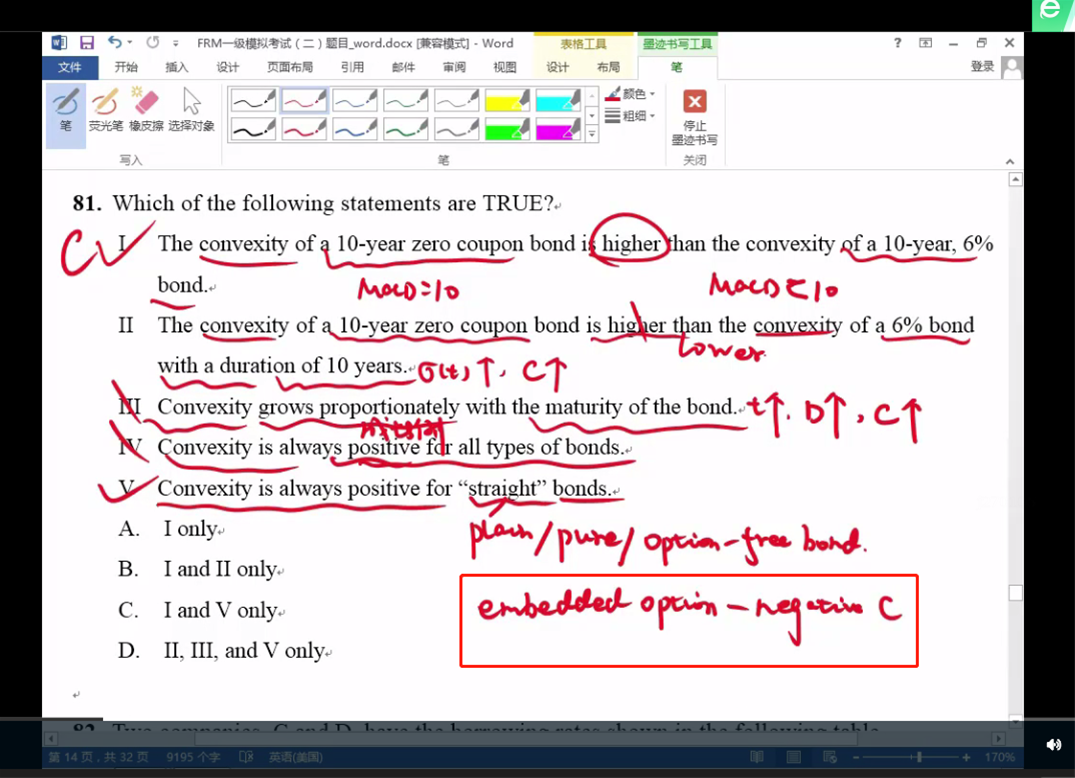 e
FRM一级模拟考试（二）题目_word.docx [兼容模式] - Word 表格工具 墨迹书写工具 ?
文件 开始 插入 设计 页面布局 引用 邮件 审阅 视图 设计 布局 笔 登录
笔 荧光笔 橡皮擦 选择对象 颜色 粗细 停止墨迹书写
写入 笔 关闭
81. Which of the following statements are TRUE?
C I The convexity of a 10-year zero coupon bond is higher than the convexity of a 10-year, 6%
bond.
MacD=10 MacD<10
II The convexity of a 10-year zero coupon bond is higher than the convexity of a 6% bond
lower
with a duration of 10 years. σ(t)↑, C↑
III Convexity grows proportionately with the maturity of the bond. t↑, D↑, C↑
IV Convexity is always positive for all types of bonds.
V Convexity is always positive for “straight” bonds.
A. I only
plain/pure/option-free bond.
B. I and II only
C. I and V only
embedded option - negative C
D. II, III, and V only
82. Two companies, C and D, have the borrowing rates shown in the following table.
第 14 页，共 32 页 9195 个字 英语(美国) 170%